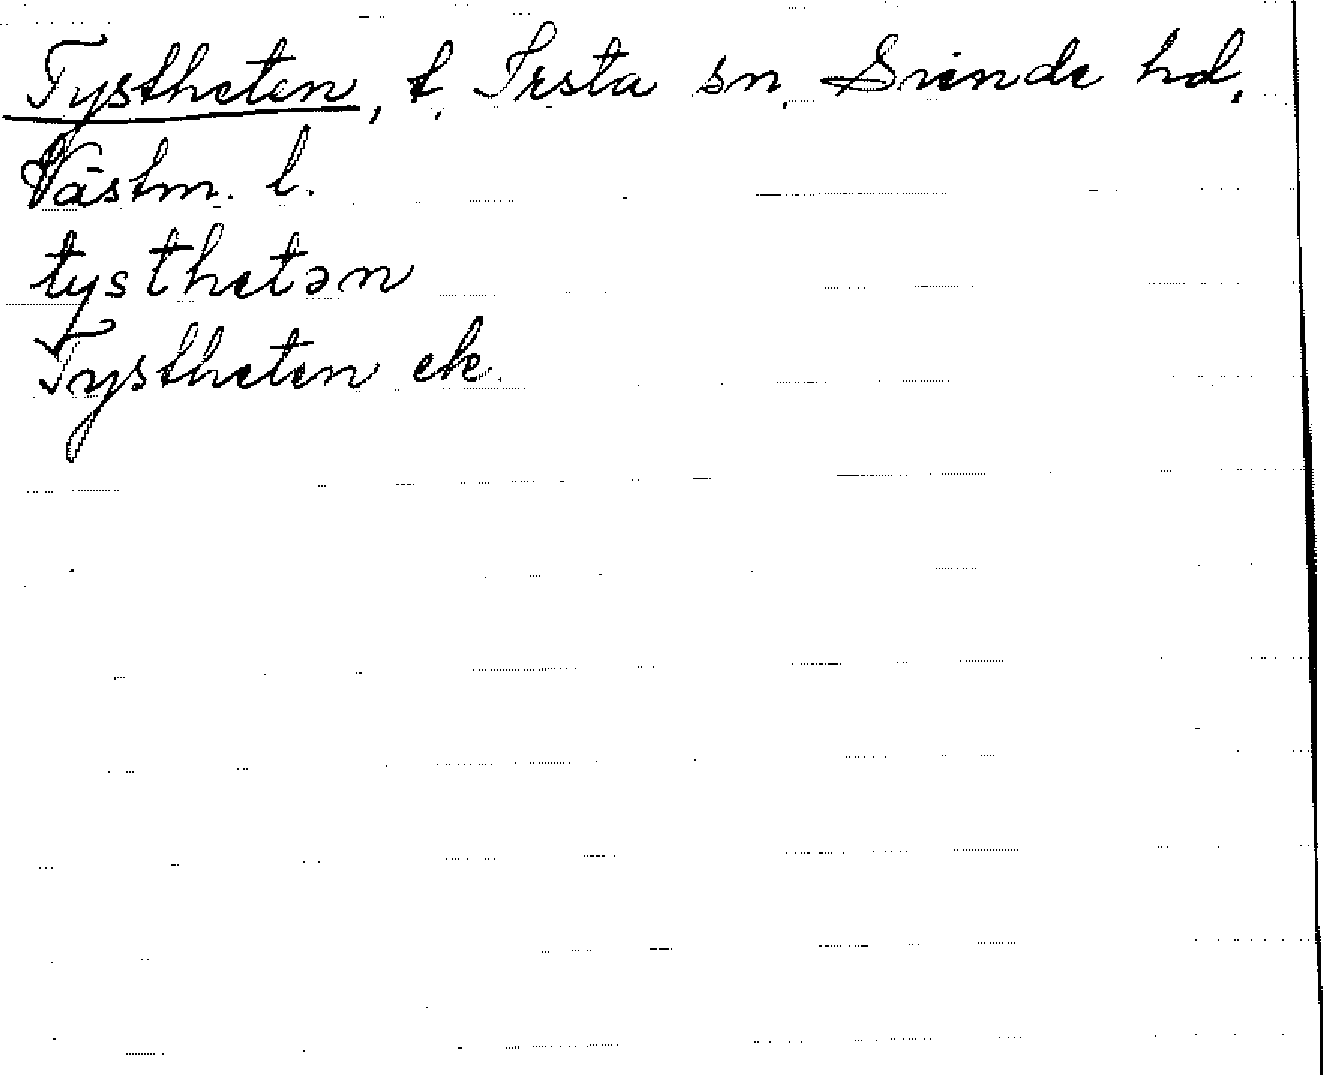 Tystheten, t. Irsta sn, Siende hd,
Västm. l.
tysthetən
Tystheten ek.